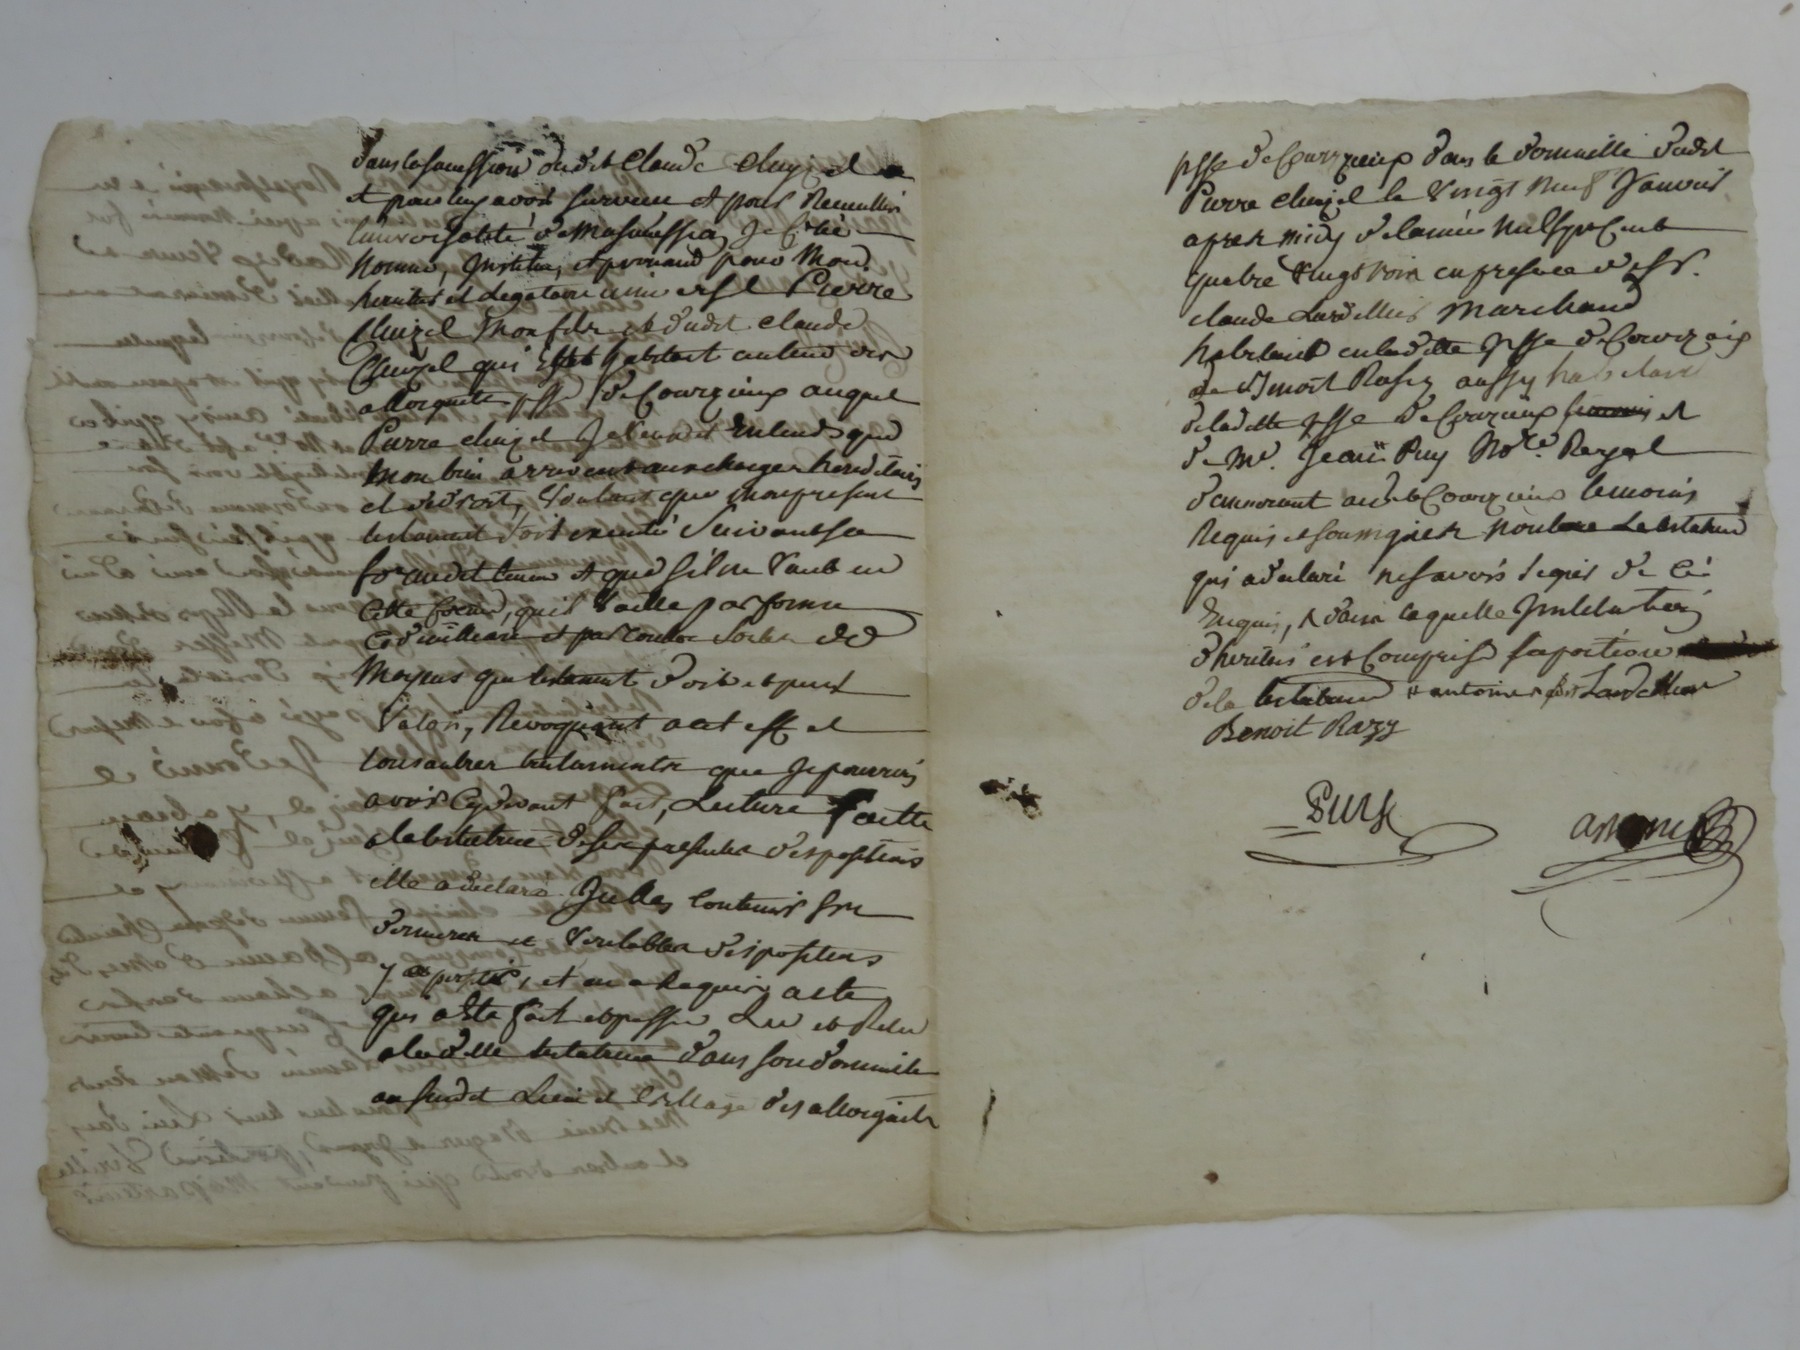 dans la succession dudit Claude Chuzel
et pour luy avoir survecu et pour Recueillir
l'universalité de Ma succession Je fais
nomme, Institue, et proviend pour Mon
heritier et Legataire universel Pierre
Chuzel Mon fils et dudit Claude
Chuzel qui est habitant au lieu des
allorguets psse de Courzieux auquel
Pierre Chuzel Je veux et Entends que
Mon bien arrive aux charges hereditaires
et de droit, Voulant que Mon present
testament soit executé Suivant sa
forme et teneur et que s'il ne Vaut en
Cette forme, qu'il Vaille par forme
Codicillaire et par toutes Sortes de
Moyens que testament doit et peut
Valoir, Revoquant a cet effet
tous autres testaments que Je pourrois
avoir Cy devant fait, Lecture faitte
a la testatrice de ses presentes dispositions
elle a declaré Icelles Contenir ses
dernieres et Veritables dispositions
y a persisté, et en a Requis acte
qui a Eté fait et passé Lu et Relu
a laditte testatrice dans son domicile
au susdit Lieu et Village des allorguets
psse de Courzieux dans le domicille dudit
Pierre Chuzel le Vingt neuf Janvier
apres midy de l'année Mil Sept Cent
quatre Vingt trois en presence de Sr.
Claude Lardellier Marchand
habitant en laditte psse de Courzieux
de Benoit Razy aussy habitant
de laditte psse de Courzieux et
de Me. Jean Puy Nore. Royal
demeurant audit Courzieux temoins
Requis et soussignés non la testatrice
qui a declaré ne savoir signer de Ce
Enquis, dans laquelle Institution
d'heritier est Comprise sa portion
de la testatrice antoine Lardellier
Benoit Razy
Puy